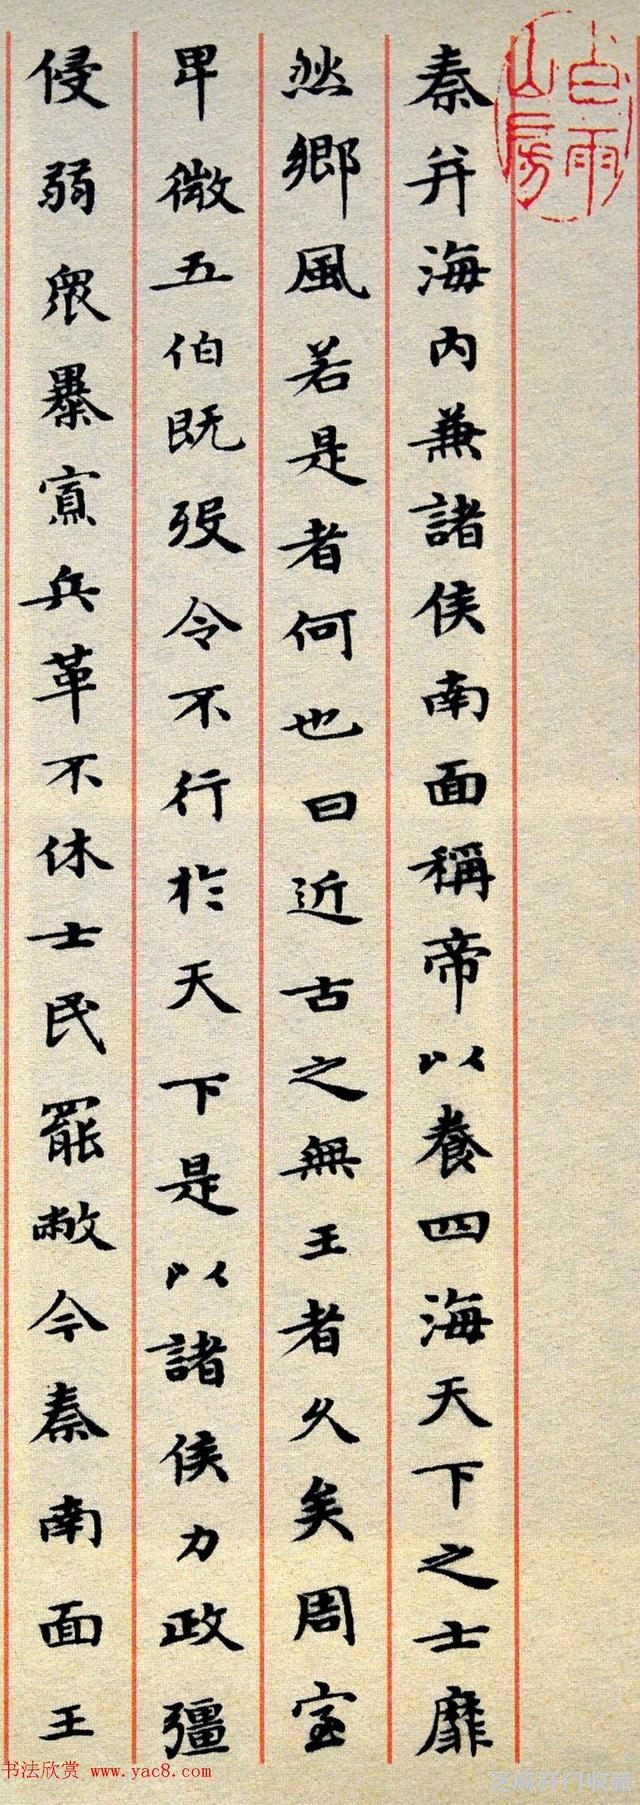 秦并海内兼諸侯南面稱帝以養四海天下之士靡
然鄉風若是者何也曰近古之無王者久矣周室
卑微五伯既歿令不行於天下是以諸侯力政彊
侵弱衆暴寡兵革不休士民罷敝今秦南面王
白雨山房
书法欣赏 www.yac8.com